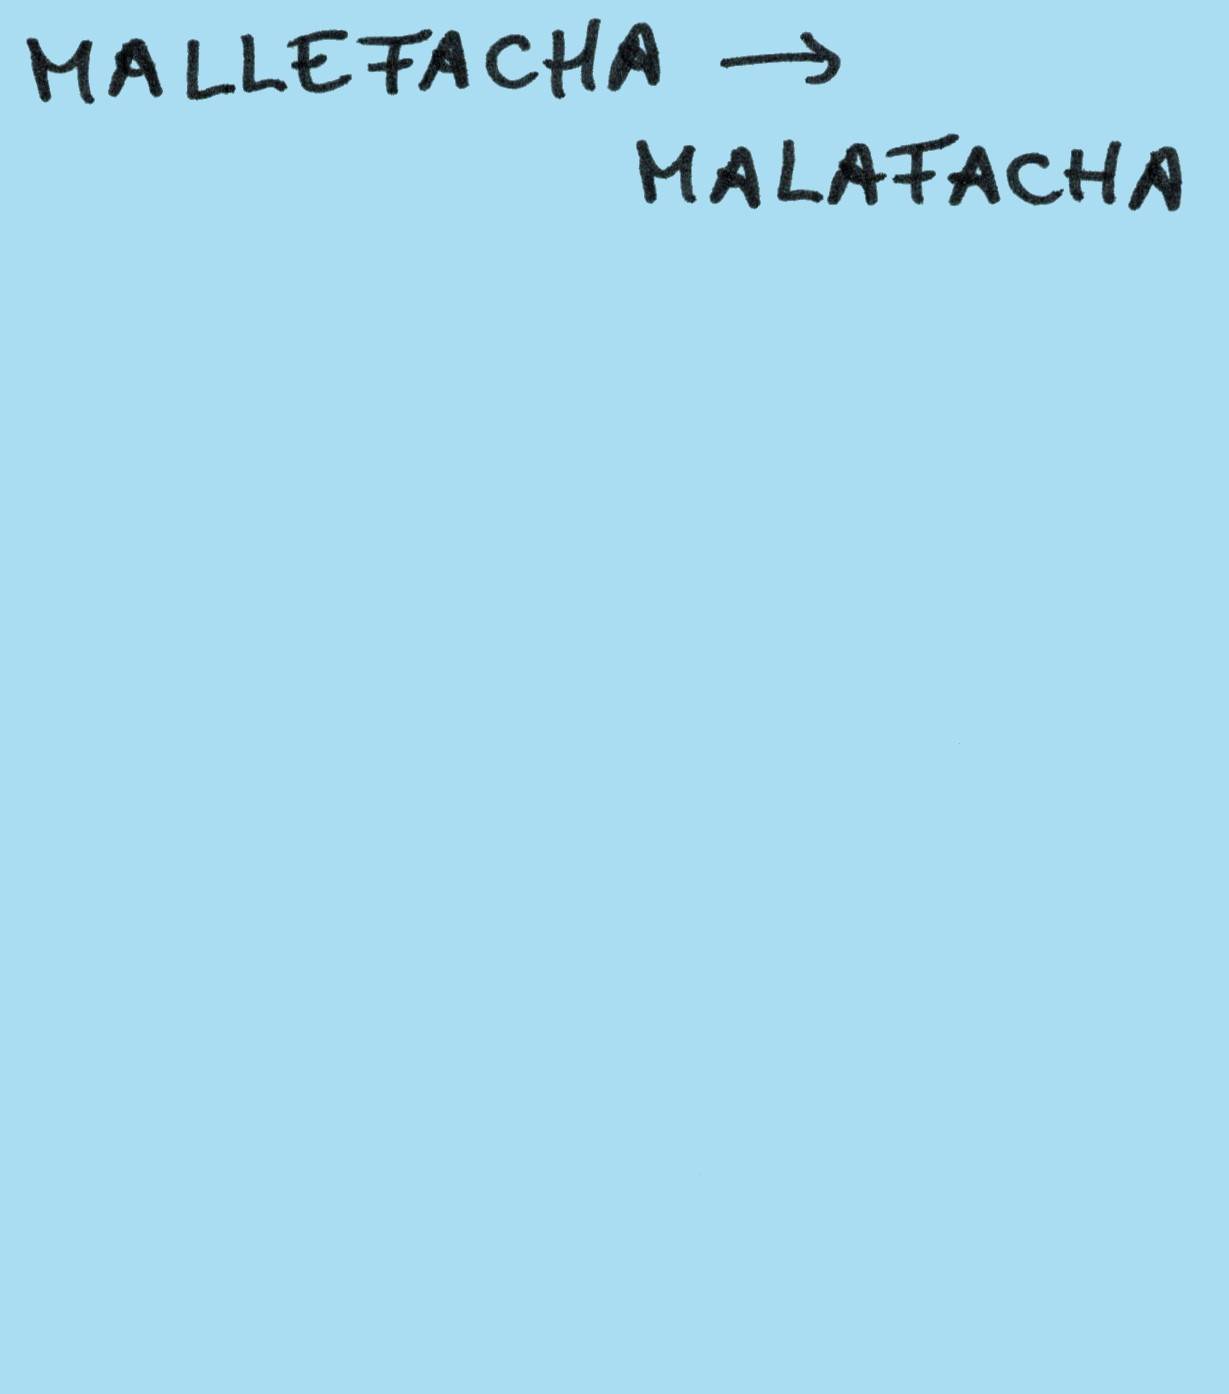 MALLEFACHA →
MALAFACHA